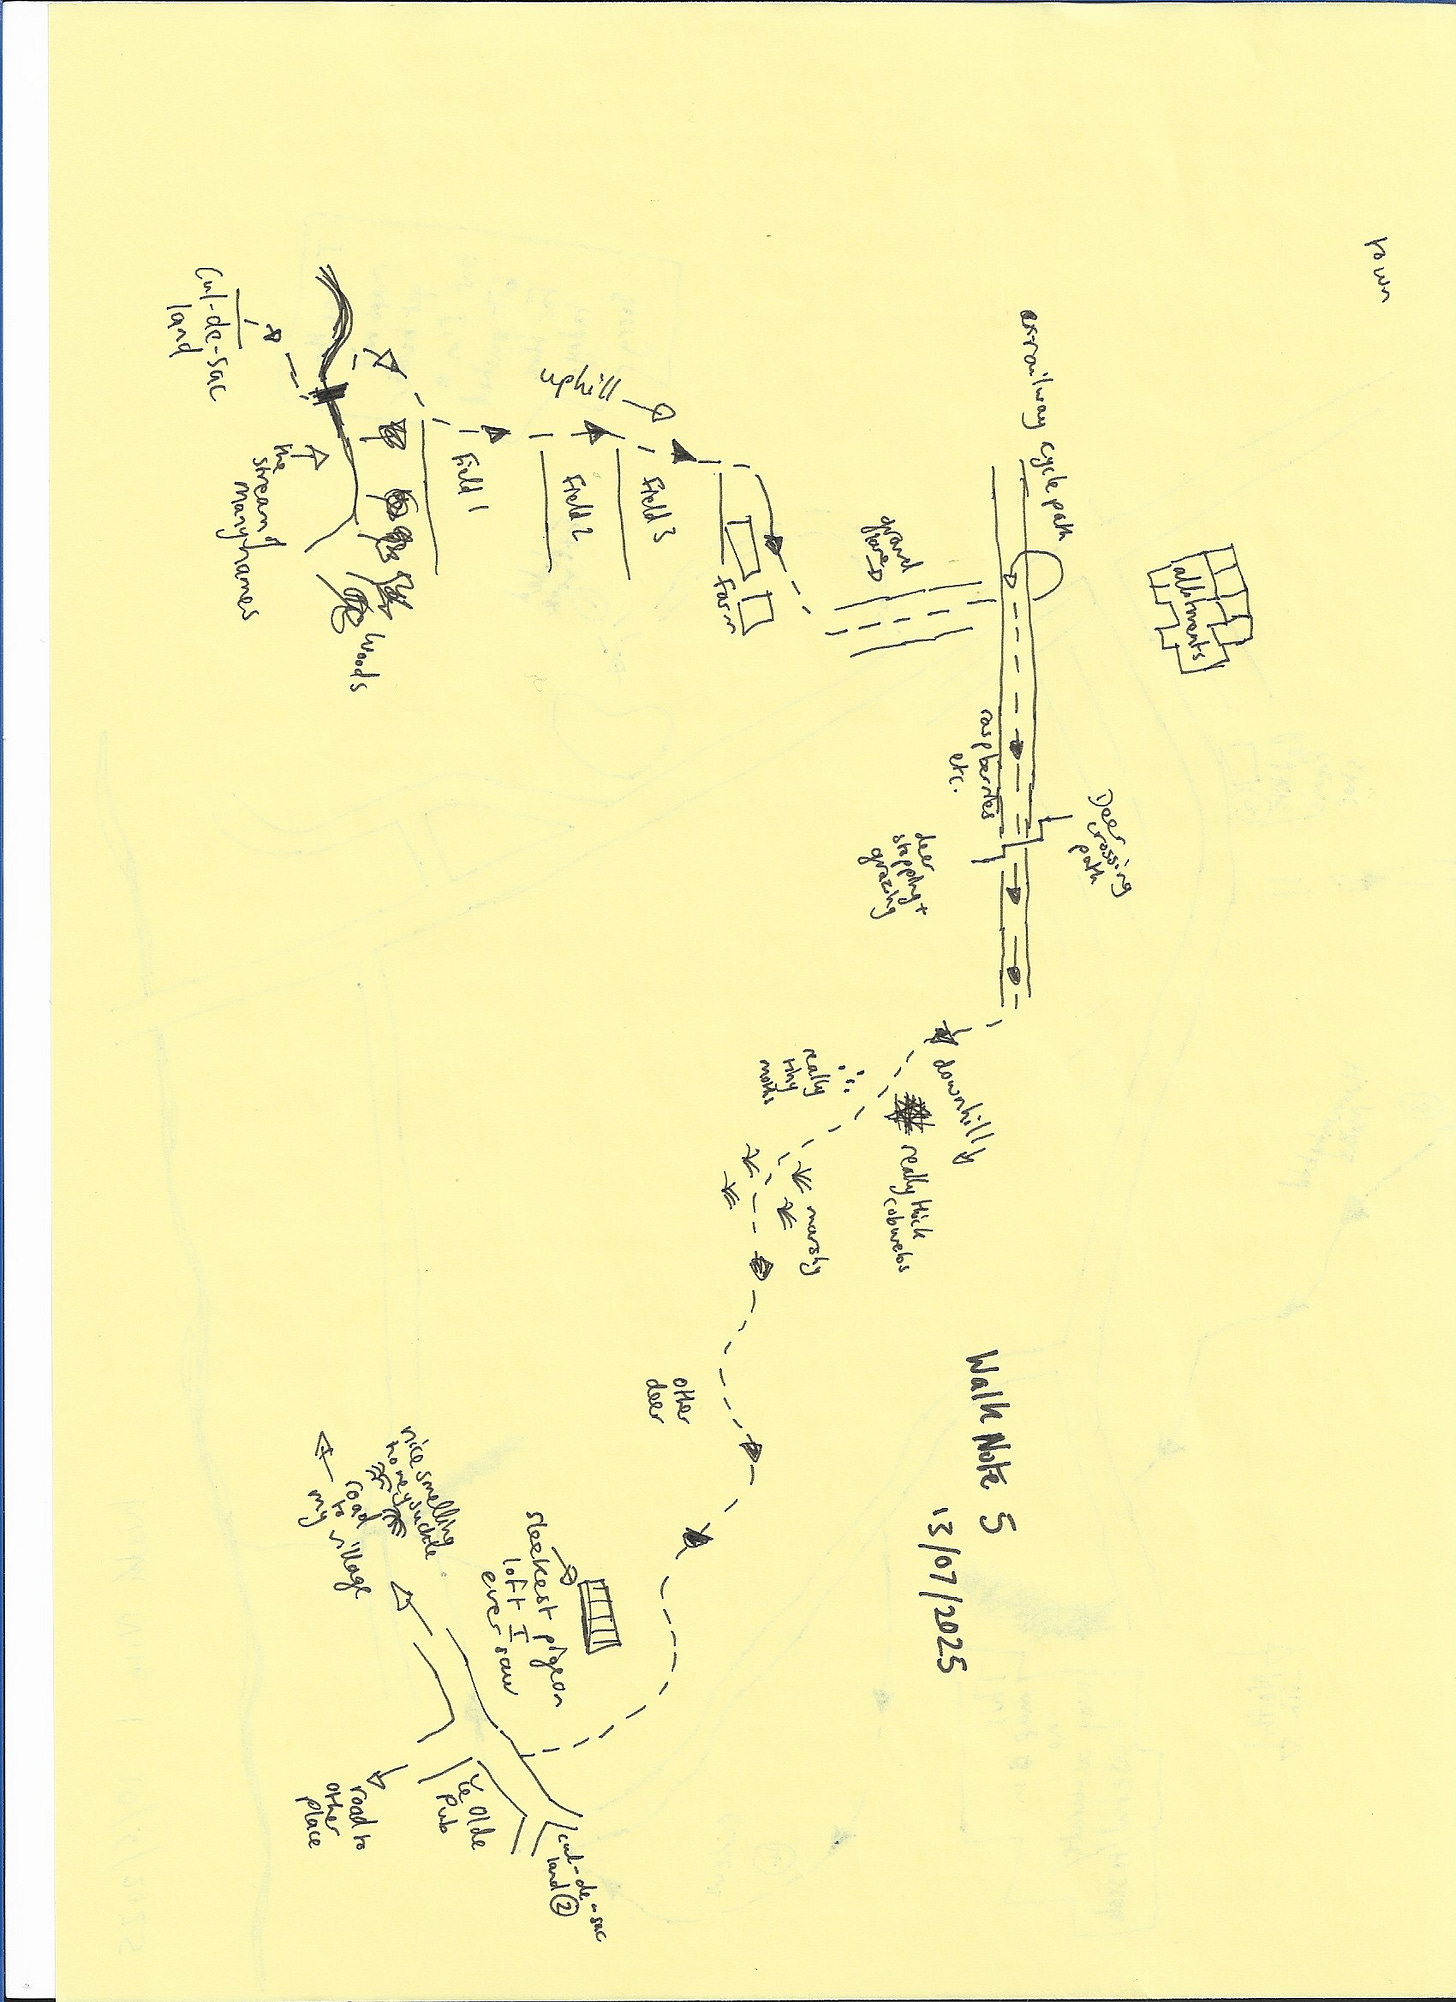 town
allotments
exrailway cycle path
Deer
crossing
path
raspberries
etc.
deer
stopping +
grazing
grand
lane
downhill
really thick
cobwebs
really
tiny
moths
marshy
Walk Note 5
13/07/2025
uphill
farm
Field 3
Field 2
Field 1
woods
the
stream of
many names
Cul-de-sac
land
other
deer
sleekest pigeon
loft I
ever saw
nice smelling
honeysuckle
road
to
my village
cul-de-sac
land ②
Ye Olde
Pub
road to
other
place